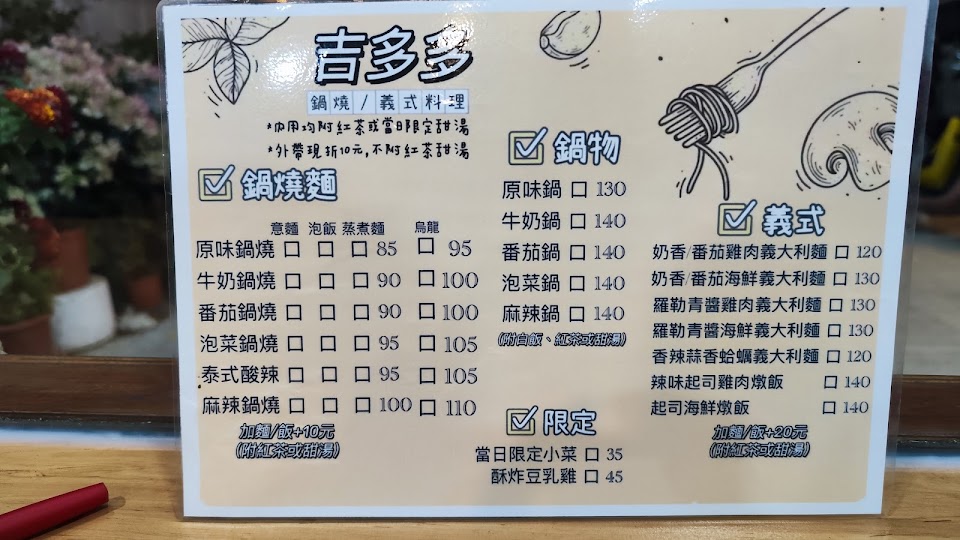 吉多多
鍋燒/義式料理
*內用均附紅茶或當日限定甜湯
*外帶現折10元,不附紅茶甜湯
鍋燒麵
意麵 泡飯 蒸煮麵 烏龍
原味鍋燒 口 口 口 85 口 95
牛奶鍋燒 口 口 口 90 口 100
番茄鍋燒 口 口 口 90 口 100
泡菜鍋燒 口 口 口 95 口 105
泰式酸辣 口 口 口 95 口 105
麻辣鍋燒 口 口 口 100 口 110
加麵/飯+10元
(附紅茶或甜湯)
鍋物
原味鍋 口 130
牛奶鍋 口 140
番茄鍋 口 140
泡菜鍋 口 140
麻辣鍋 口 140
(附白飯、紅茶或甜湯)
限定
當日限定小菜 口 35
酥炸豆乳雞 口 45
義式
奶香/番茄雞肉義大利麵 口 120
奶香/番茄海鮮義大利麵 口 130
羅勒青醬雞肉義大利麵 口 130
羅勒青醬海鮮義大利麵 口 130
香辣蒜香蛤蠣義大利麵 口 120
辣味起司雞肉燉飯 口 140
起司海鮮燉飯 口 140
加麵/飯+20元
(附紅茶或甜湯)